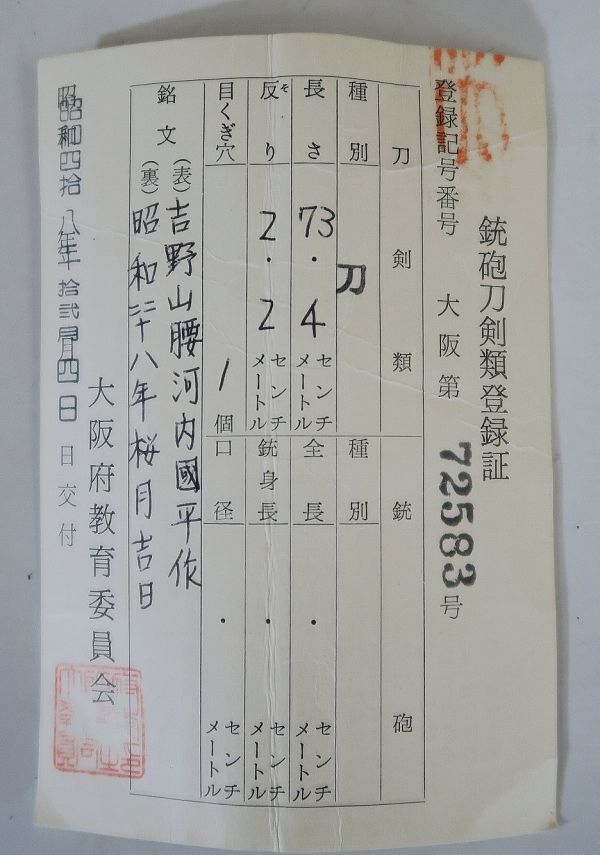 銃砲刀剣類登録証
登録記号番号 大阪第 72583 号
刀剣類 銃砲
種別 刀 種別
長さ 73.4 センチメートル 全長 ・ センチメートル
反り そ 2.2 センチメートル 銃身長 ・ センチメートル
目くぎ穴 1 個 口径 ・ センチメートル
銘文 (表) 吉野山麓河内國平作
(裏) 昭和 年桜月吉日
大阪府教育委員会
昭和四拾八年拾弐月四日 日交付